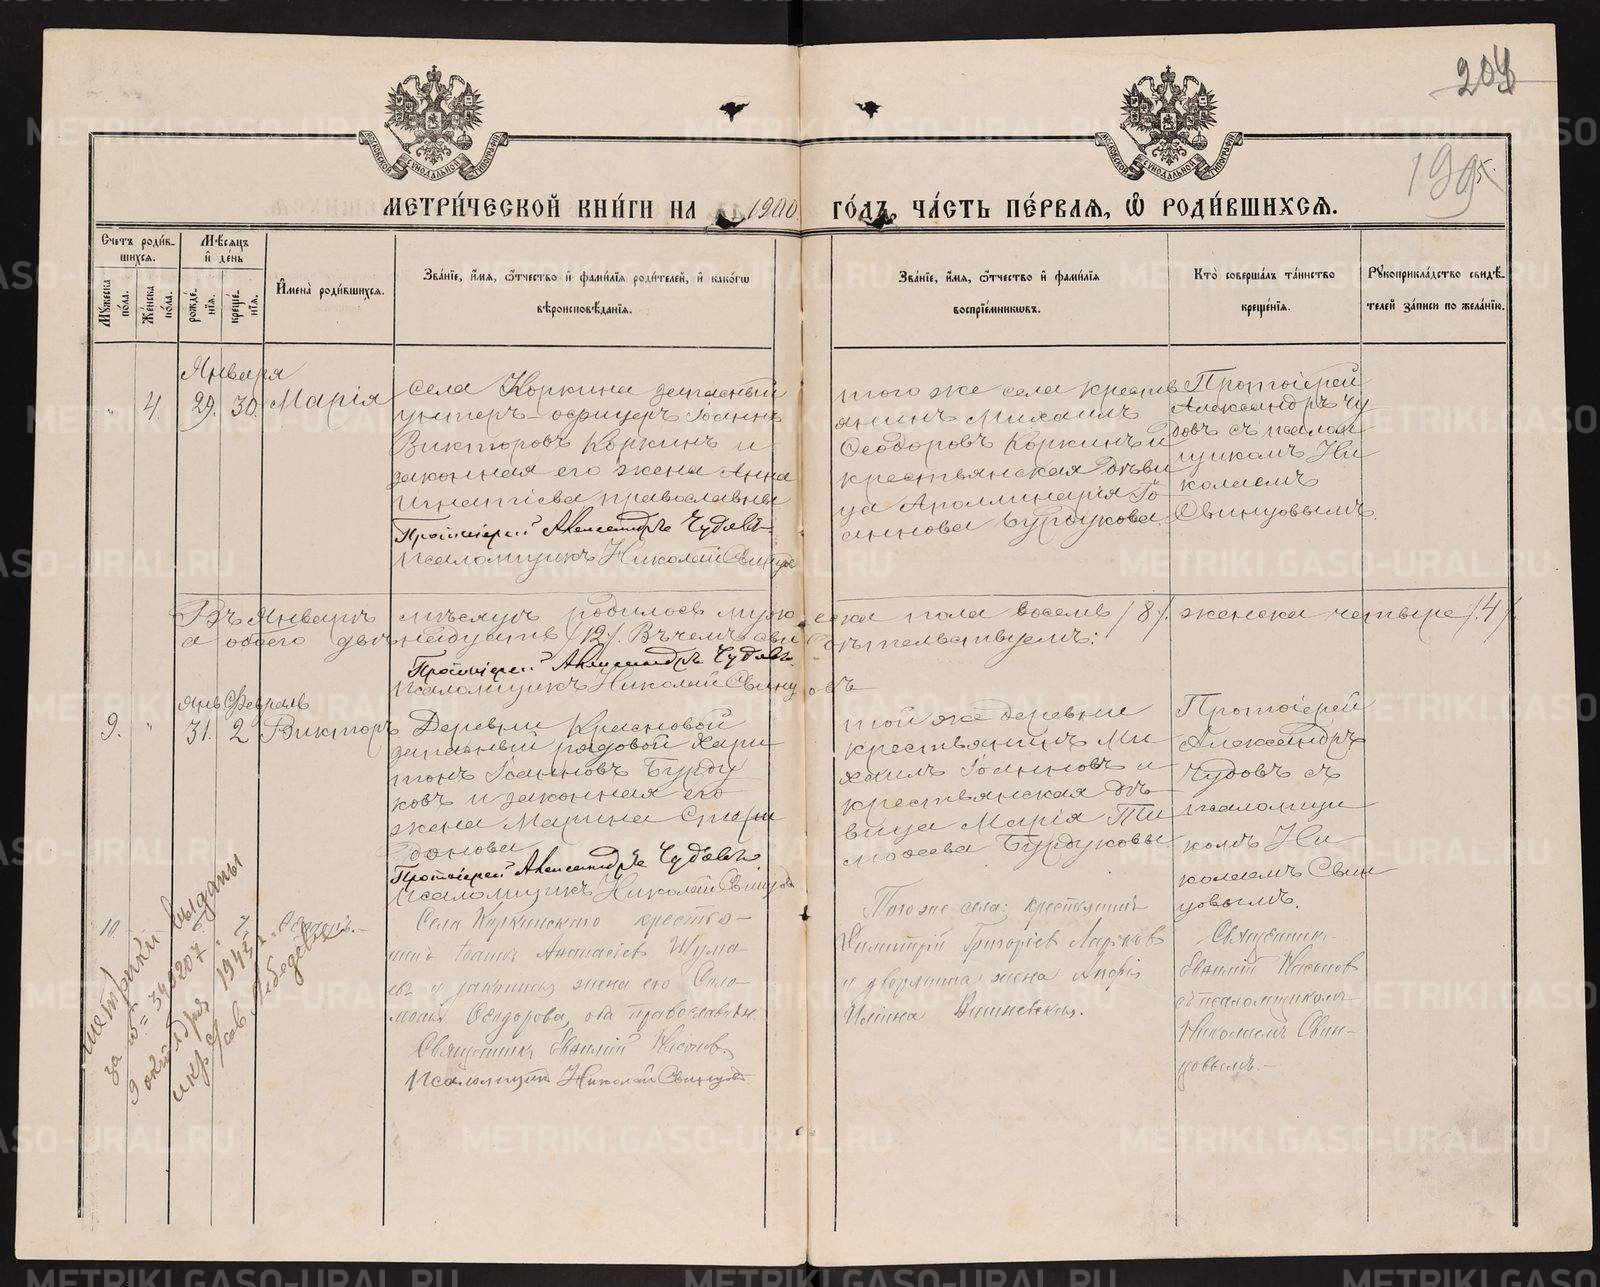 204
195
МЕТРИ́ЧЕСКОЙ КНИ́ГИ НА 1900 ГО́ДЪ, ЧА́СТЬ ПЕ́РВАЯ, Ѽ РОДИ́ВШИХСЯ.
Счетъ роди́вшихся.
Му́жеска по́ла.
Же́нска по́ла.
Мѣ́сяцъ и́ де́нь
рожде́нїя.
креще́нїя.
И́мена̀ роди́вшихся.
Зва́нїе, и́мя, ѻ́тчество и́ фами́лїя роди́телей, и́ како́гѡ вѣроисповѣ́данїя.
Зва́нїе, и́мя, ѻ́тчество и́ фами́лїя воспрїе́мникѡвъ.
Кто̀ соверша́лъ та́инство креще́нїя.
Рꙋкоприкла́дство свидѣ́телей за́писи по жела́нїю.
Января
" 4. 29. 30. Марія
села Коркина запасный
унтеръ-офицеръ Іоаннъ
Викторовъ Коркинъ и
законная его жена Анна
Игнатіева православны
Протоіерей Александръ Чудовъ
Псаломщикъ Николай Свинцовъ
того же села крестьянинъ Михаилъ
Ѳеодоровъ Коркинъ и
крестьянская дѣвица Аполлинарія Іоаннова Бурдукова.
Протоіерей
Александръ Чудовъ съ псаломщикомъ Николаемъ
Свинцовымъ.
Въ Январѣ мѣсяцѣ родилось мужеска пола восемь /8/. женска четыре /4/
а обоего двѣнадцать /12/. Въ чемъ свидѣтельствуемъ:
Протоіерей Александръ Чудовъ
Псаломщикъ Николай Свинцовъ
Янв Февраль
9. " 31. 2 Викторъ
Деревни Красновой
запасный рядовой Харитонъ Іоанновъ Бурдуковъ и законная его
жена Марина Спиридонова
Протоіерей Александръ Чудовъ
Псаломщикъ Николай Свинцовъ
той же деревни
крестьянинъ Михаилъ Іоанновъ и
крестьянская дѣвица Марія Тимоѳеева Бурдуковы
Протоіерей
Александръ
Чудовъ съ
псаломщикомъ Николаемъ Свинцовымъ.
10
Села Коркинскаго крестьянинъ Іоаннъ Аѳанасіевъ Шумаевъ и законная жена его Соломонія Ѳеодорова, оба православные
Священникъ Евѳимій
Псаломщикъ Николай Свинцовъ
Того же села: крестьянинъ
Димитрій Григоріевъ
и дворянина жена
Священникъ
Евѳимій
съ псаломщикомъ
Николаемъ Свинцовымъ.
метрики выданы
за № 340207
9 октября 1945 г.